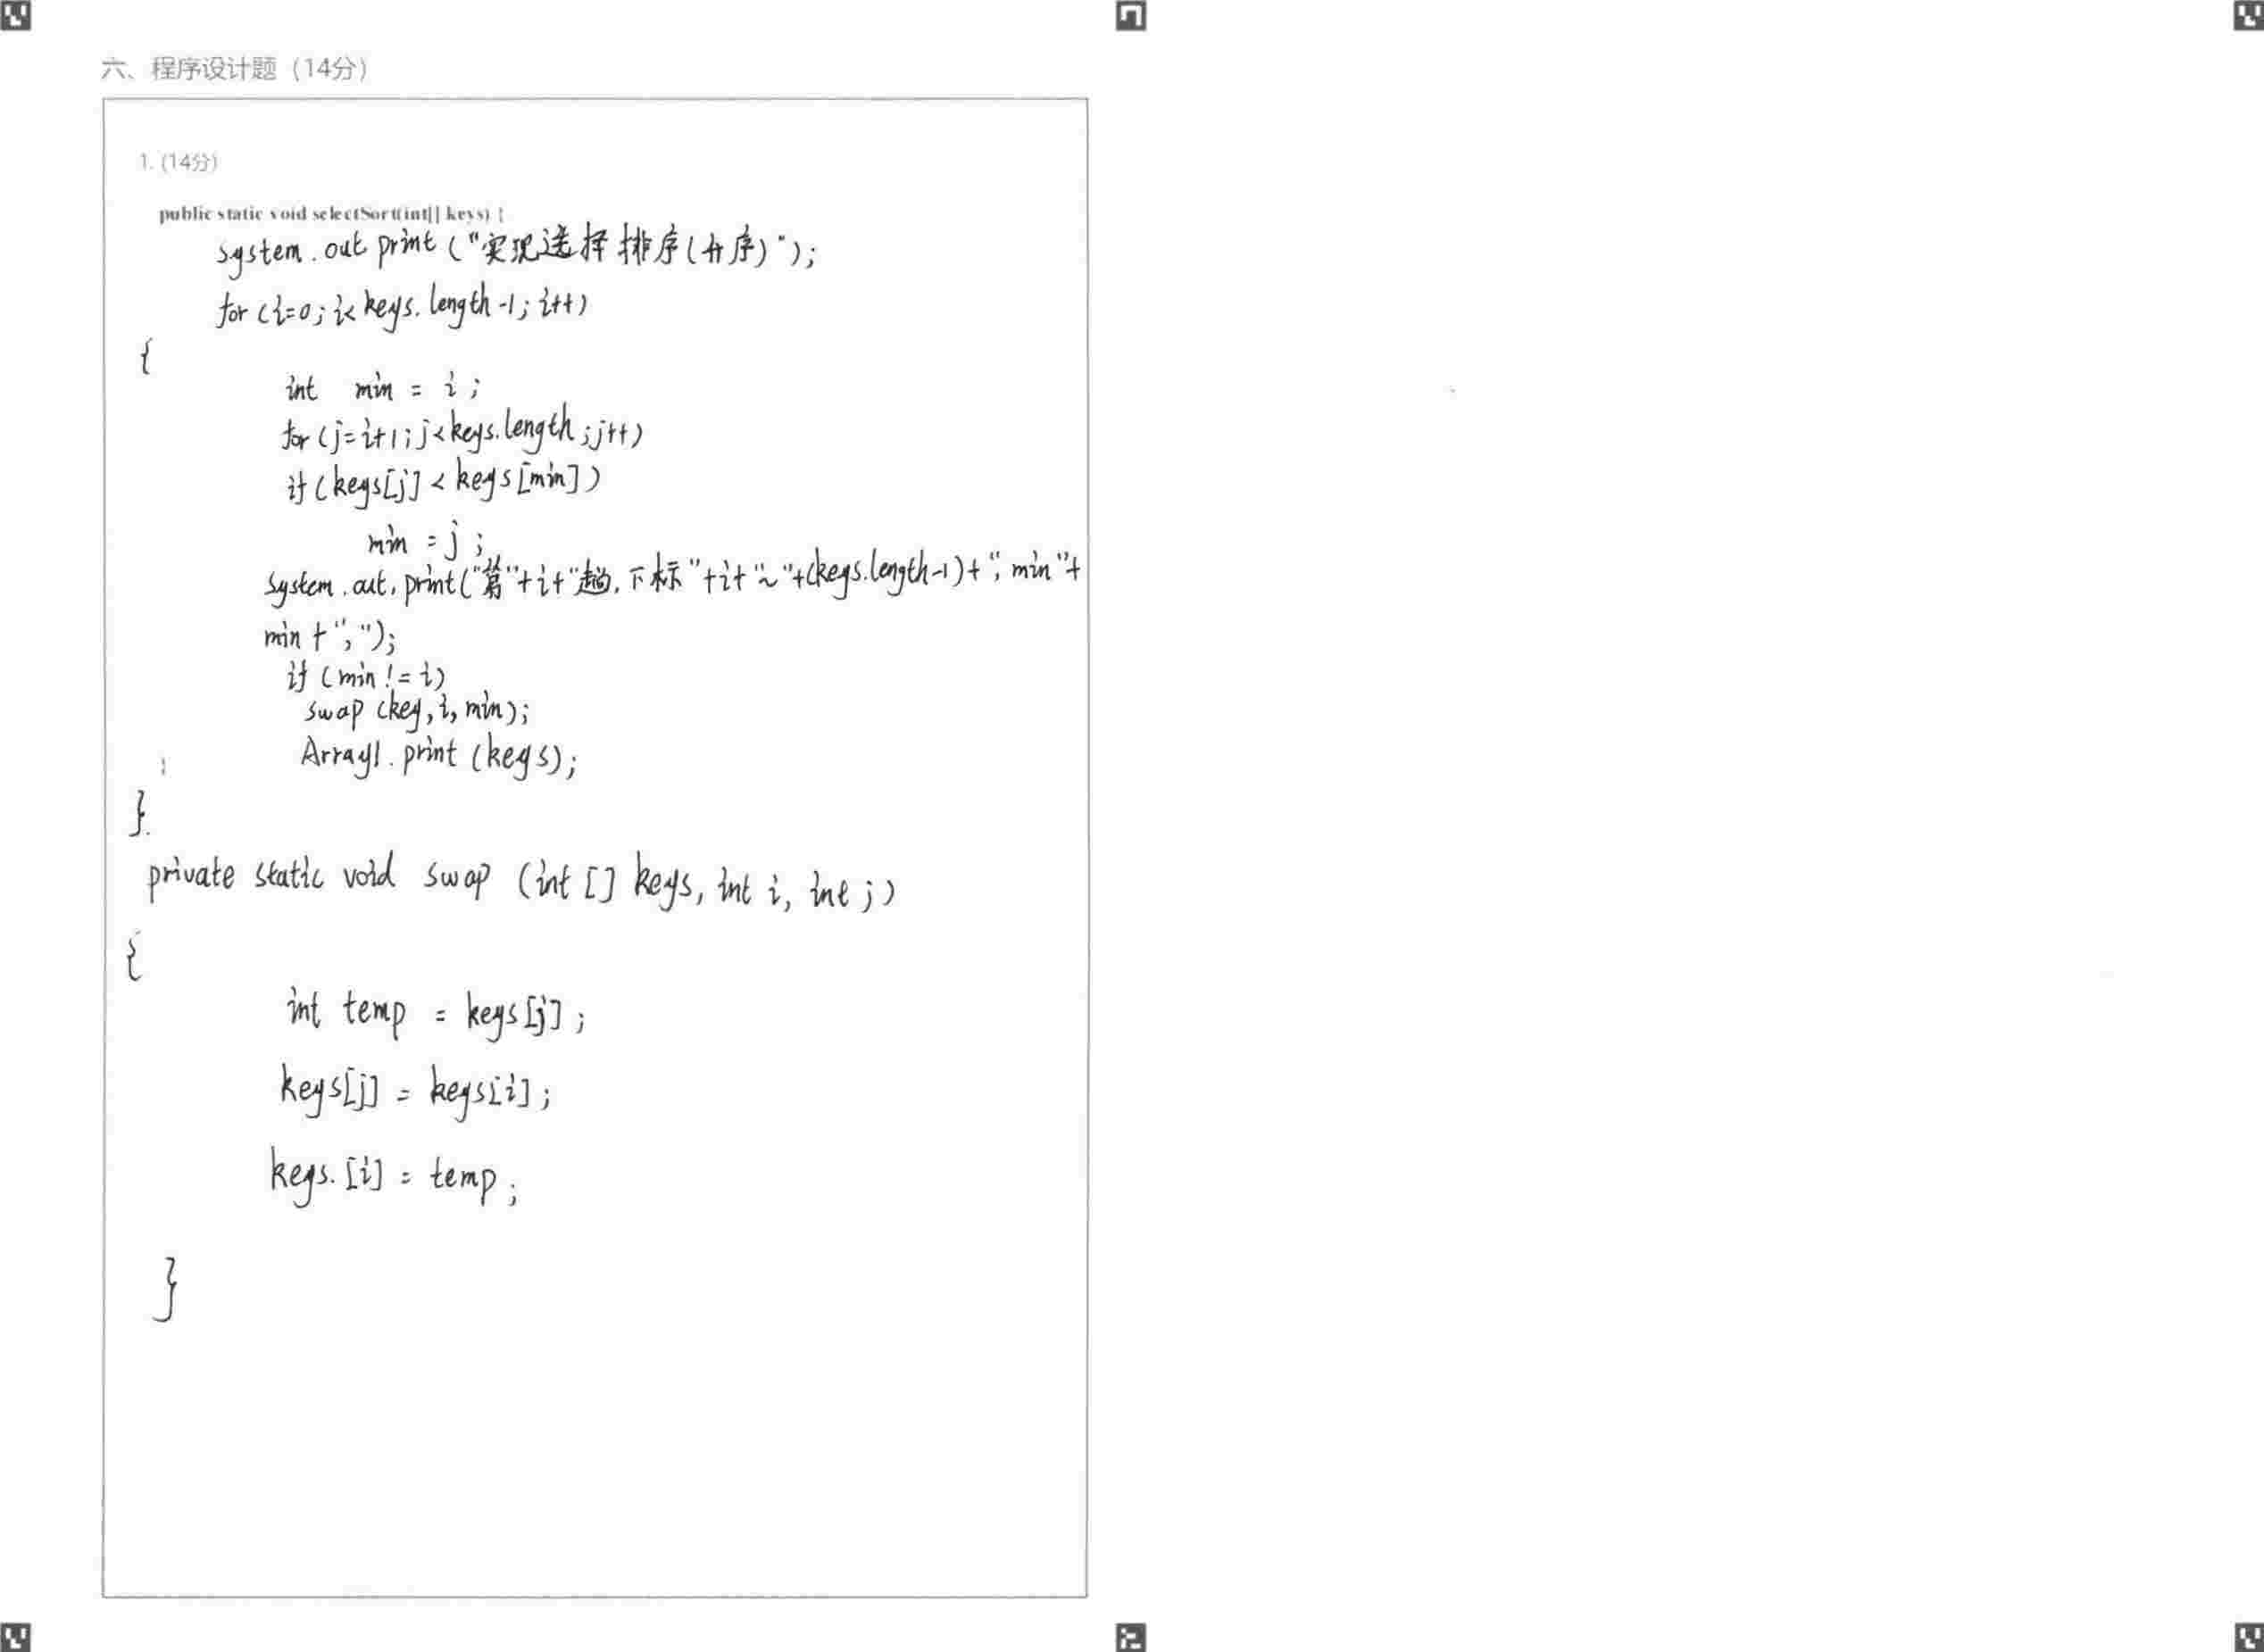 六、程序设计题（14分）
1. (14分)
public static void selectSort(int[] keys) {
system.out print ("实现选择排序(升序)");
for (i=0; i< keys. length -1; i++)
{
int min = i ;
for (j= i+1; j<keys.length ;j++)
if (keys[j] < keys [min])
min = j ;
system.out.print("第"+i+"趟,下标"+i+"~"+(keys.length-1)+", min"+
min +",");
if (min != i)
swap (key, i, min);
Array1.print (keys);
}
}.
private static void swap (int [] keys, int i, int j)
{
int temp = keys[j] ;
keys[j] = keys[i] ;
keys.[i] = temp ;
}